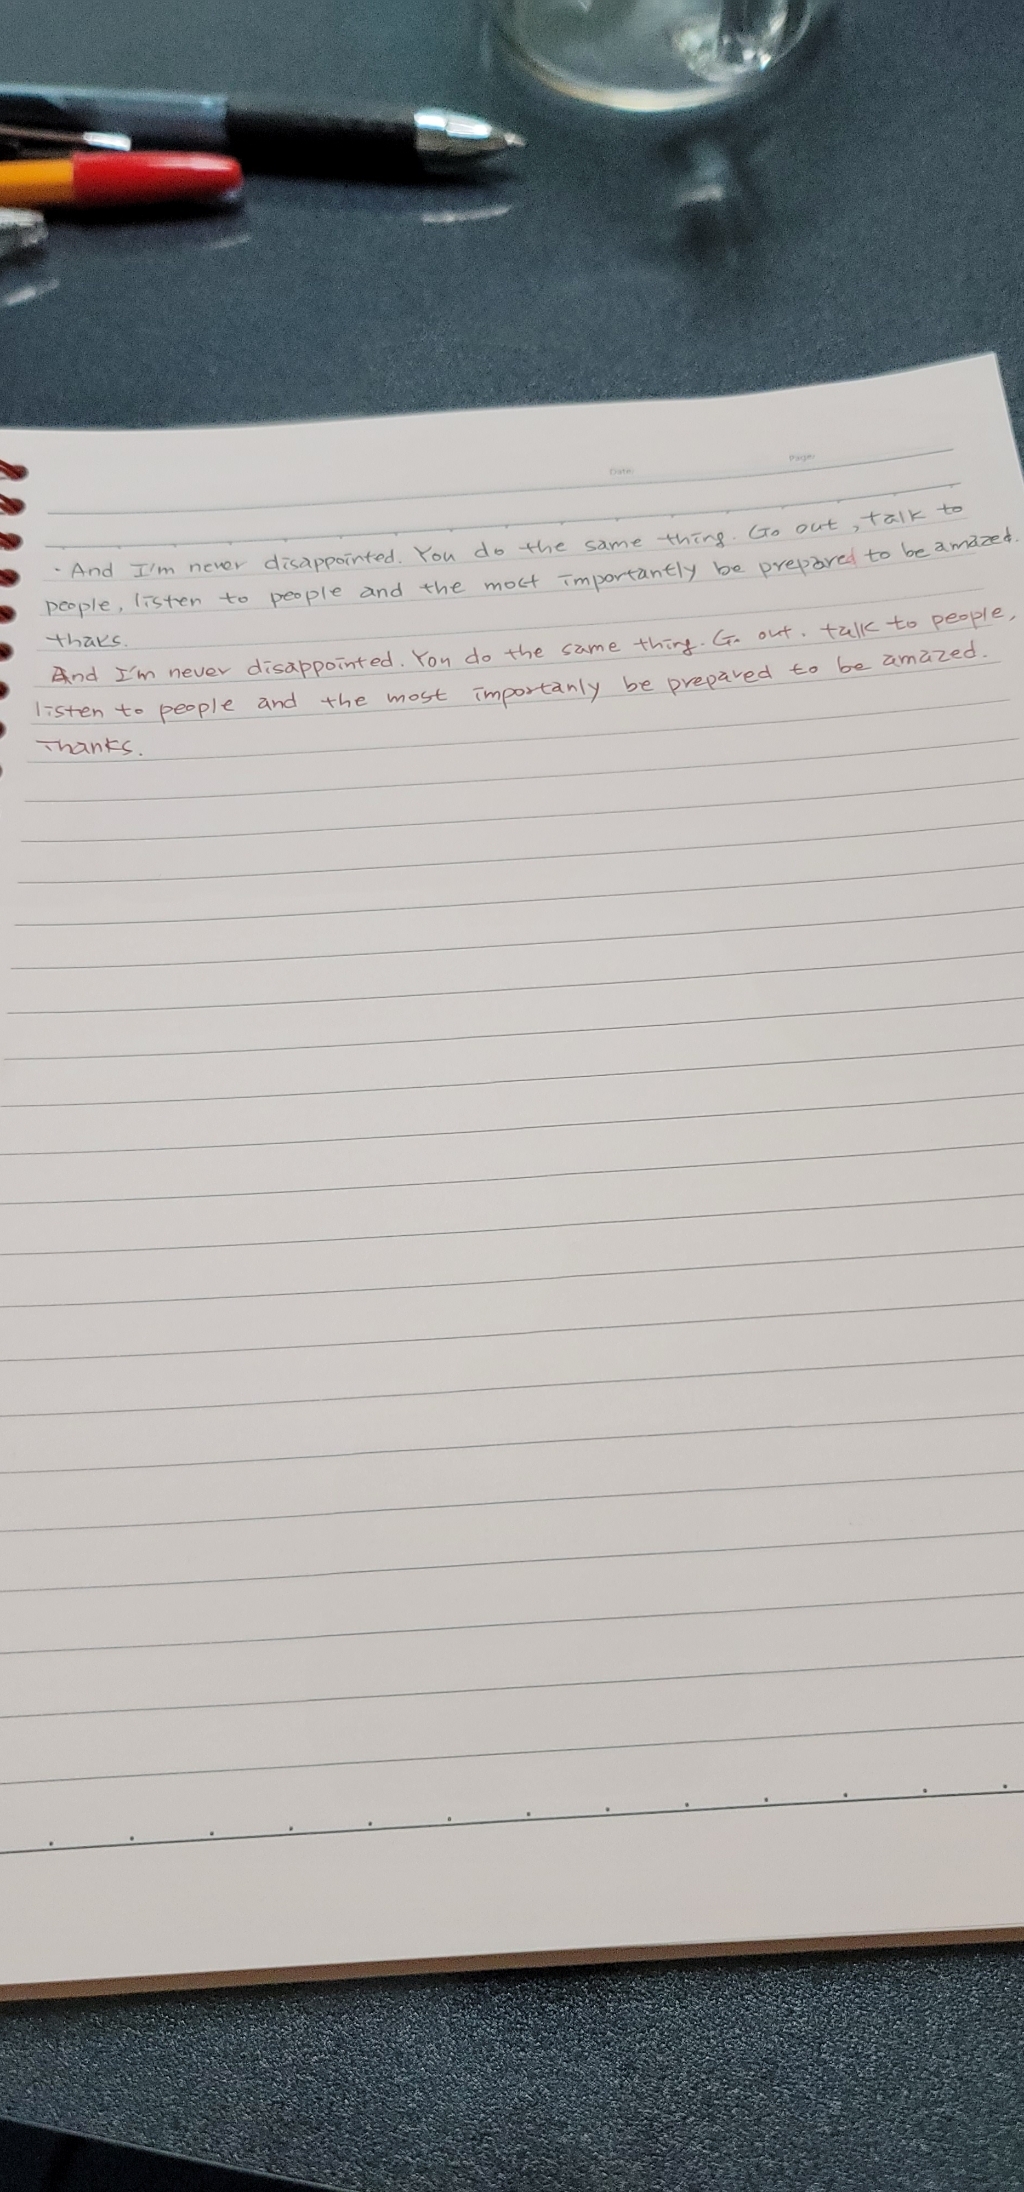 Date: Page:
· And I'm never disappointed. You do the same thing. Go out, talk to
people, listen to people and the most importantly be prepared to be amazed.
thaks.
And I'm never disappointed. You do the same thing. Go out. talk to people,
listen to people and the most importanly be prepared to be amazed.
Thanks.